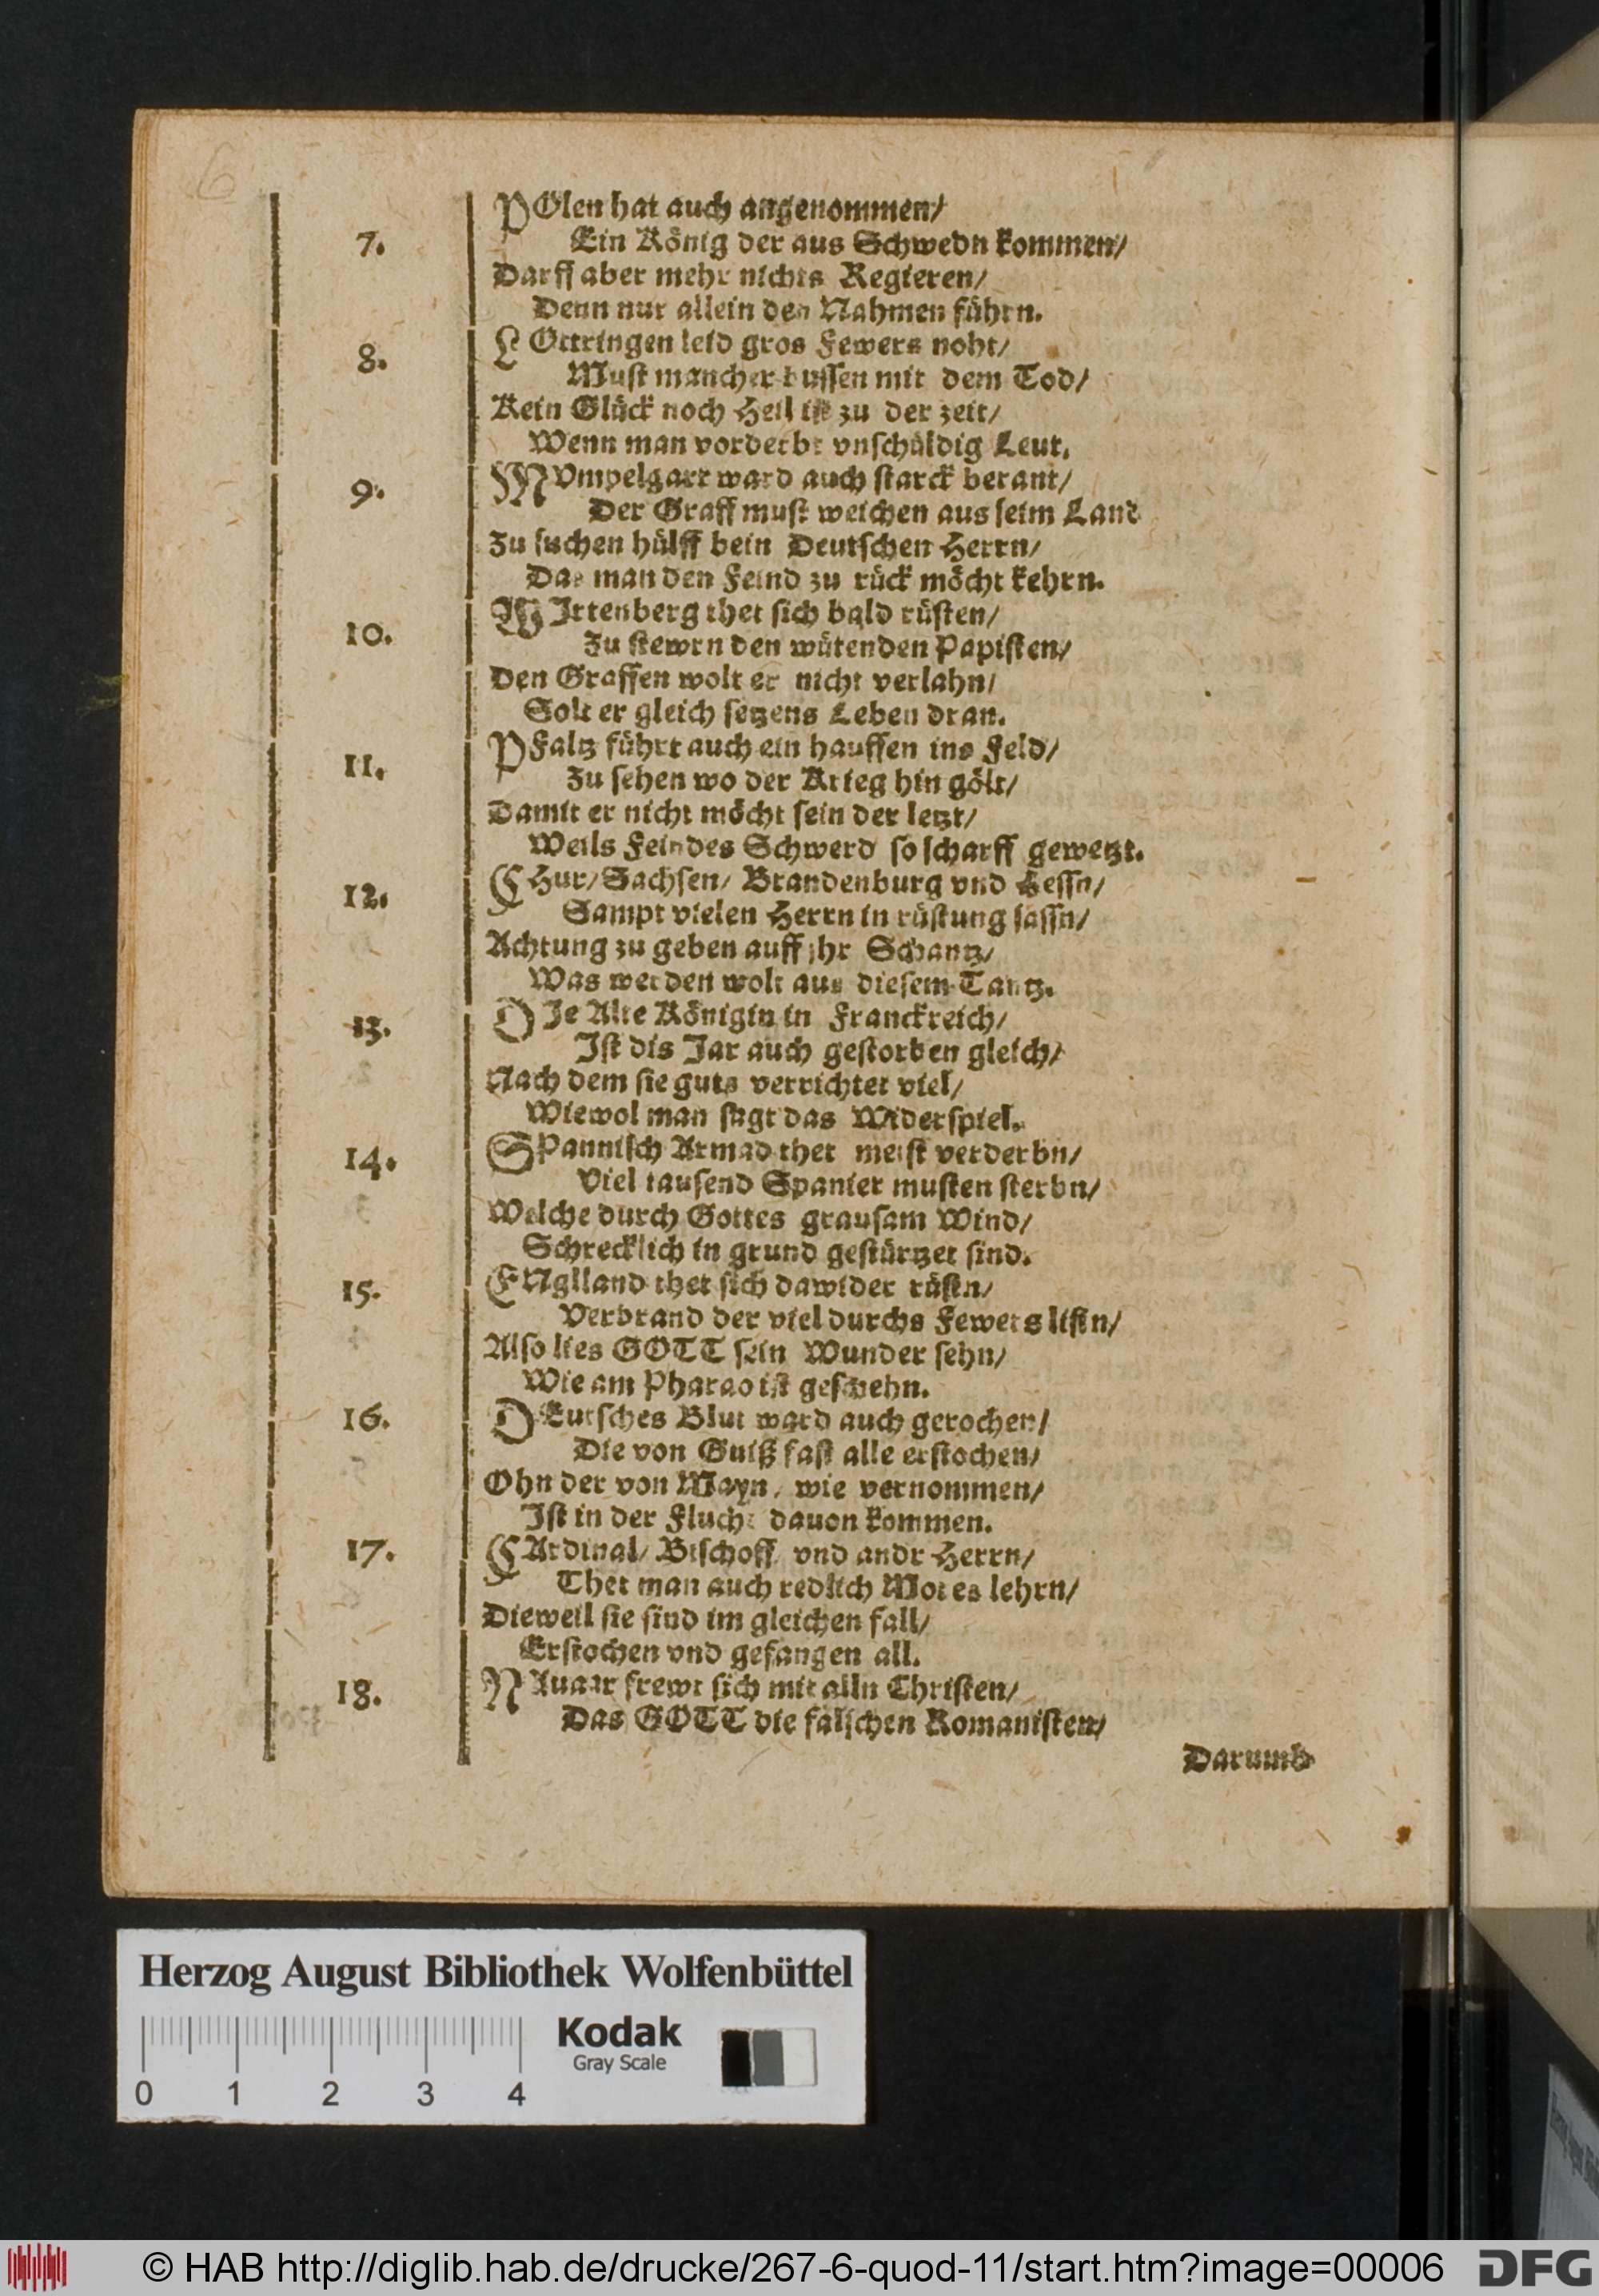 6
7.
POlen hat auch angenommen/
Ein König der aus Schwedn kommen/
Darff aber mehr nichts Regieren/
Denn nur allein den Nahmen führn.
8.
LOttringen leid gros Fewers noht/
Must mancher bussen mit dem Tod/
Kein Glück noch Heil ist zu der zeit/
Wenn man vorderbt vnschüldig Leut.
9.
MVmpelgart ward auch starck berant/
Der Graff must weichen aus seim Land
Zu suchen hülff bein Deutschen Herrn/
Das man den Feind zu rück möcht kehrn.
10.
WIrtenberg thet sich bald rüsten/
Zu stewrn den wütenden Papisten/
Den Graffen wolt er nicht verlahn/
Solt er gleich setzens Leben dran.
11.
PFaltz führt auch ein hauffen ins Feld/
Zu sehen wo der Krieg hin gölt/
Damit er nicht möcht sein der letzt/
Weils Feindes Schwerd so scharff gewetzt.
12.
CHur/ Sachsen/ Brandenburg vnd Hessn/
Sampt vielen Herrn in rüstung sassn/
Achtung zu geben auff jhr Schantz/
Was werden wolt aus diesem Tantz.
13.
DIe Alte Königin in Franckreich/
Ist dis Jar auch gestorben gleich/
Nach dem sie guts verrichtet viel/
Wiewol man sagt das Widerspiel.
14.
SPannisch Armad thet meist verderbn/
Viel tausend Spanier musten sterbn/
Welche durch Gottes grausam Wind/
Schrecklich in grund gestürtzet sind.
15.
ENglland thet sich dawider rüstn/
Verbrand der viel durchs Fewers listn/
Also lies GOTT sein Wunder sehn/
Wie am Pharao ist geschehn.
16.
DEutsches Blut ward auch gerochen/
Die von Guiß fast alle erstochen/
Ohn der von Mayn, wie vernommen/
Ist in der Flucht dauon kommen.
17.
CArdinal/ Bischoff/ vnd andr Herrn/
Thet man auch redlich Mores lehrn/
Dieweil sie sind im gleichen fall/
Erstochen vnd gefangen all.
18.
NAuarr frewt sich mit alln Christen/
Das GOTT die falschen Romanisten/
Darumb
Herzog August Bibliothek Wolfenbüttel
Kodak
Gray Scale
0 1 2 3 4
© HAB http://diglib.hab.de/drucke/267-6-quod-11/start.htm?image=00006
DFG